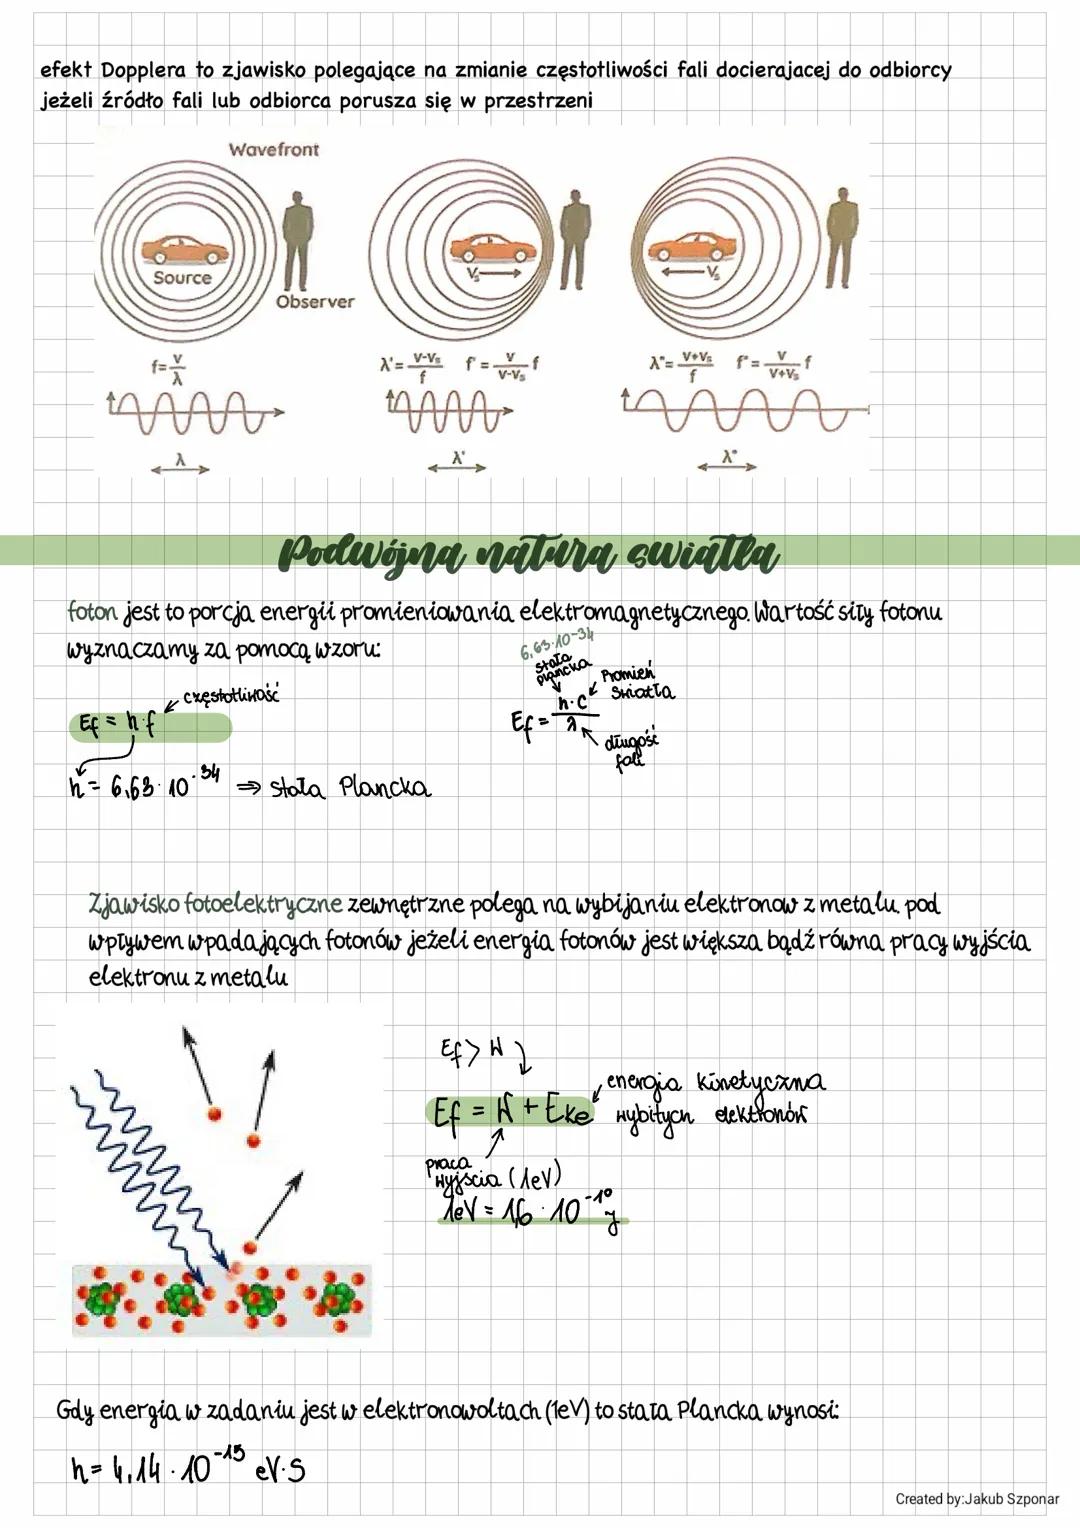 efekt Dopplera to zjawisko polegające na zmianie częstotliwości fali docierajacej do odbiorcy
jeżeli źródło fali lub odbiorca porusza się w przestrzeni
Wavefront
Source
Observer
Vs
Vs
f=V/λ
λ'=V-Vs/f f'=V/V-Vs f
λ"=V+Vs/f f"=V/V+Vs f
λ
λ'
λ"
Podwójna natura swiatła
foton jest to porcja energii promieniowania elektromagnetycznego. Wartość siły fotonu
wyznaczamy za pomocą wzoru:
częstotliwość
Ef = h·f
h = 6,63·10^-34 ⇒ stała Plancka
6,63·10^-34
stała
plancka
Promień
Swiatła
Ef = h·c/λ
długość
fali
Zjawisko fotoelektryczne zewnętrzne polega na wybijaniu elektronow z metalu pod
wpływem wpadających fotonów jeżeli energia fotonów jest większa bądź równa pracy wyjścia
elektronu z metalu
Ef > W
Ef = W + Eke
energia kinetyczna
wybitych elektronów
praca
wyjścia (1eV)
1eV = 1,6·10^-19 J
Gdy energia w zadaniu jest w elektronowoltach (1eV) to stała Plancka wynosi:
h = 4,14·10^-15 eV·S
Created by:Jakub Szponar